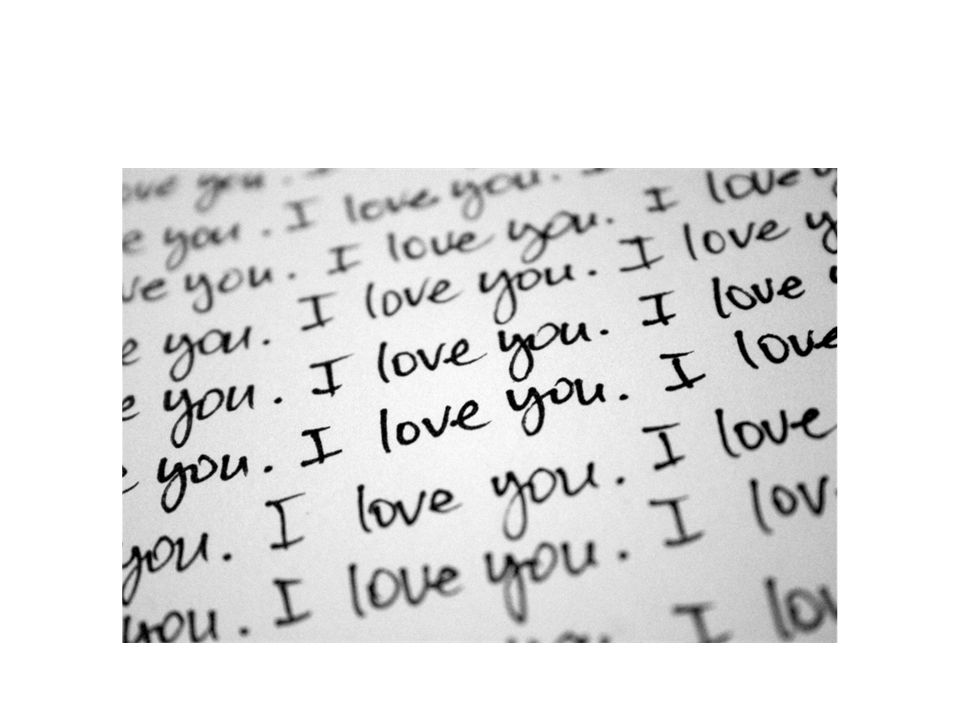 ove you.
e you. I love you.
ve you. I love you. I love y
e you. I love you. I love y
e you. I love you. I love y
e you. I love you. I love
you. I love you. I love
you. I love you. I lov
you. I lov